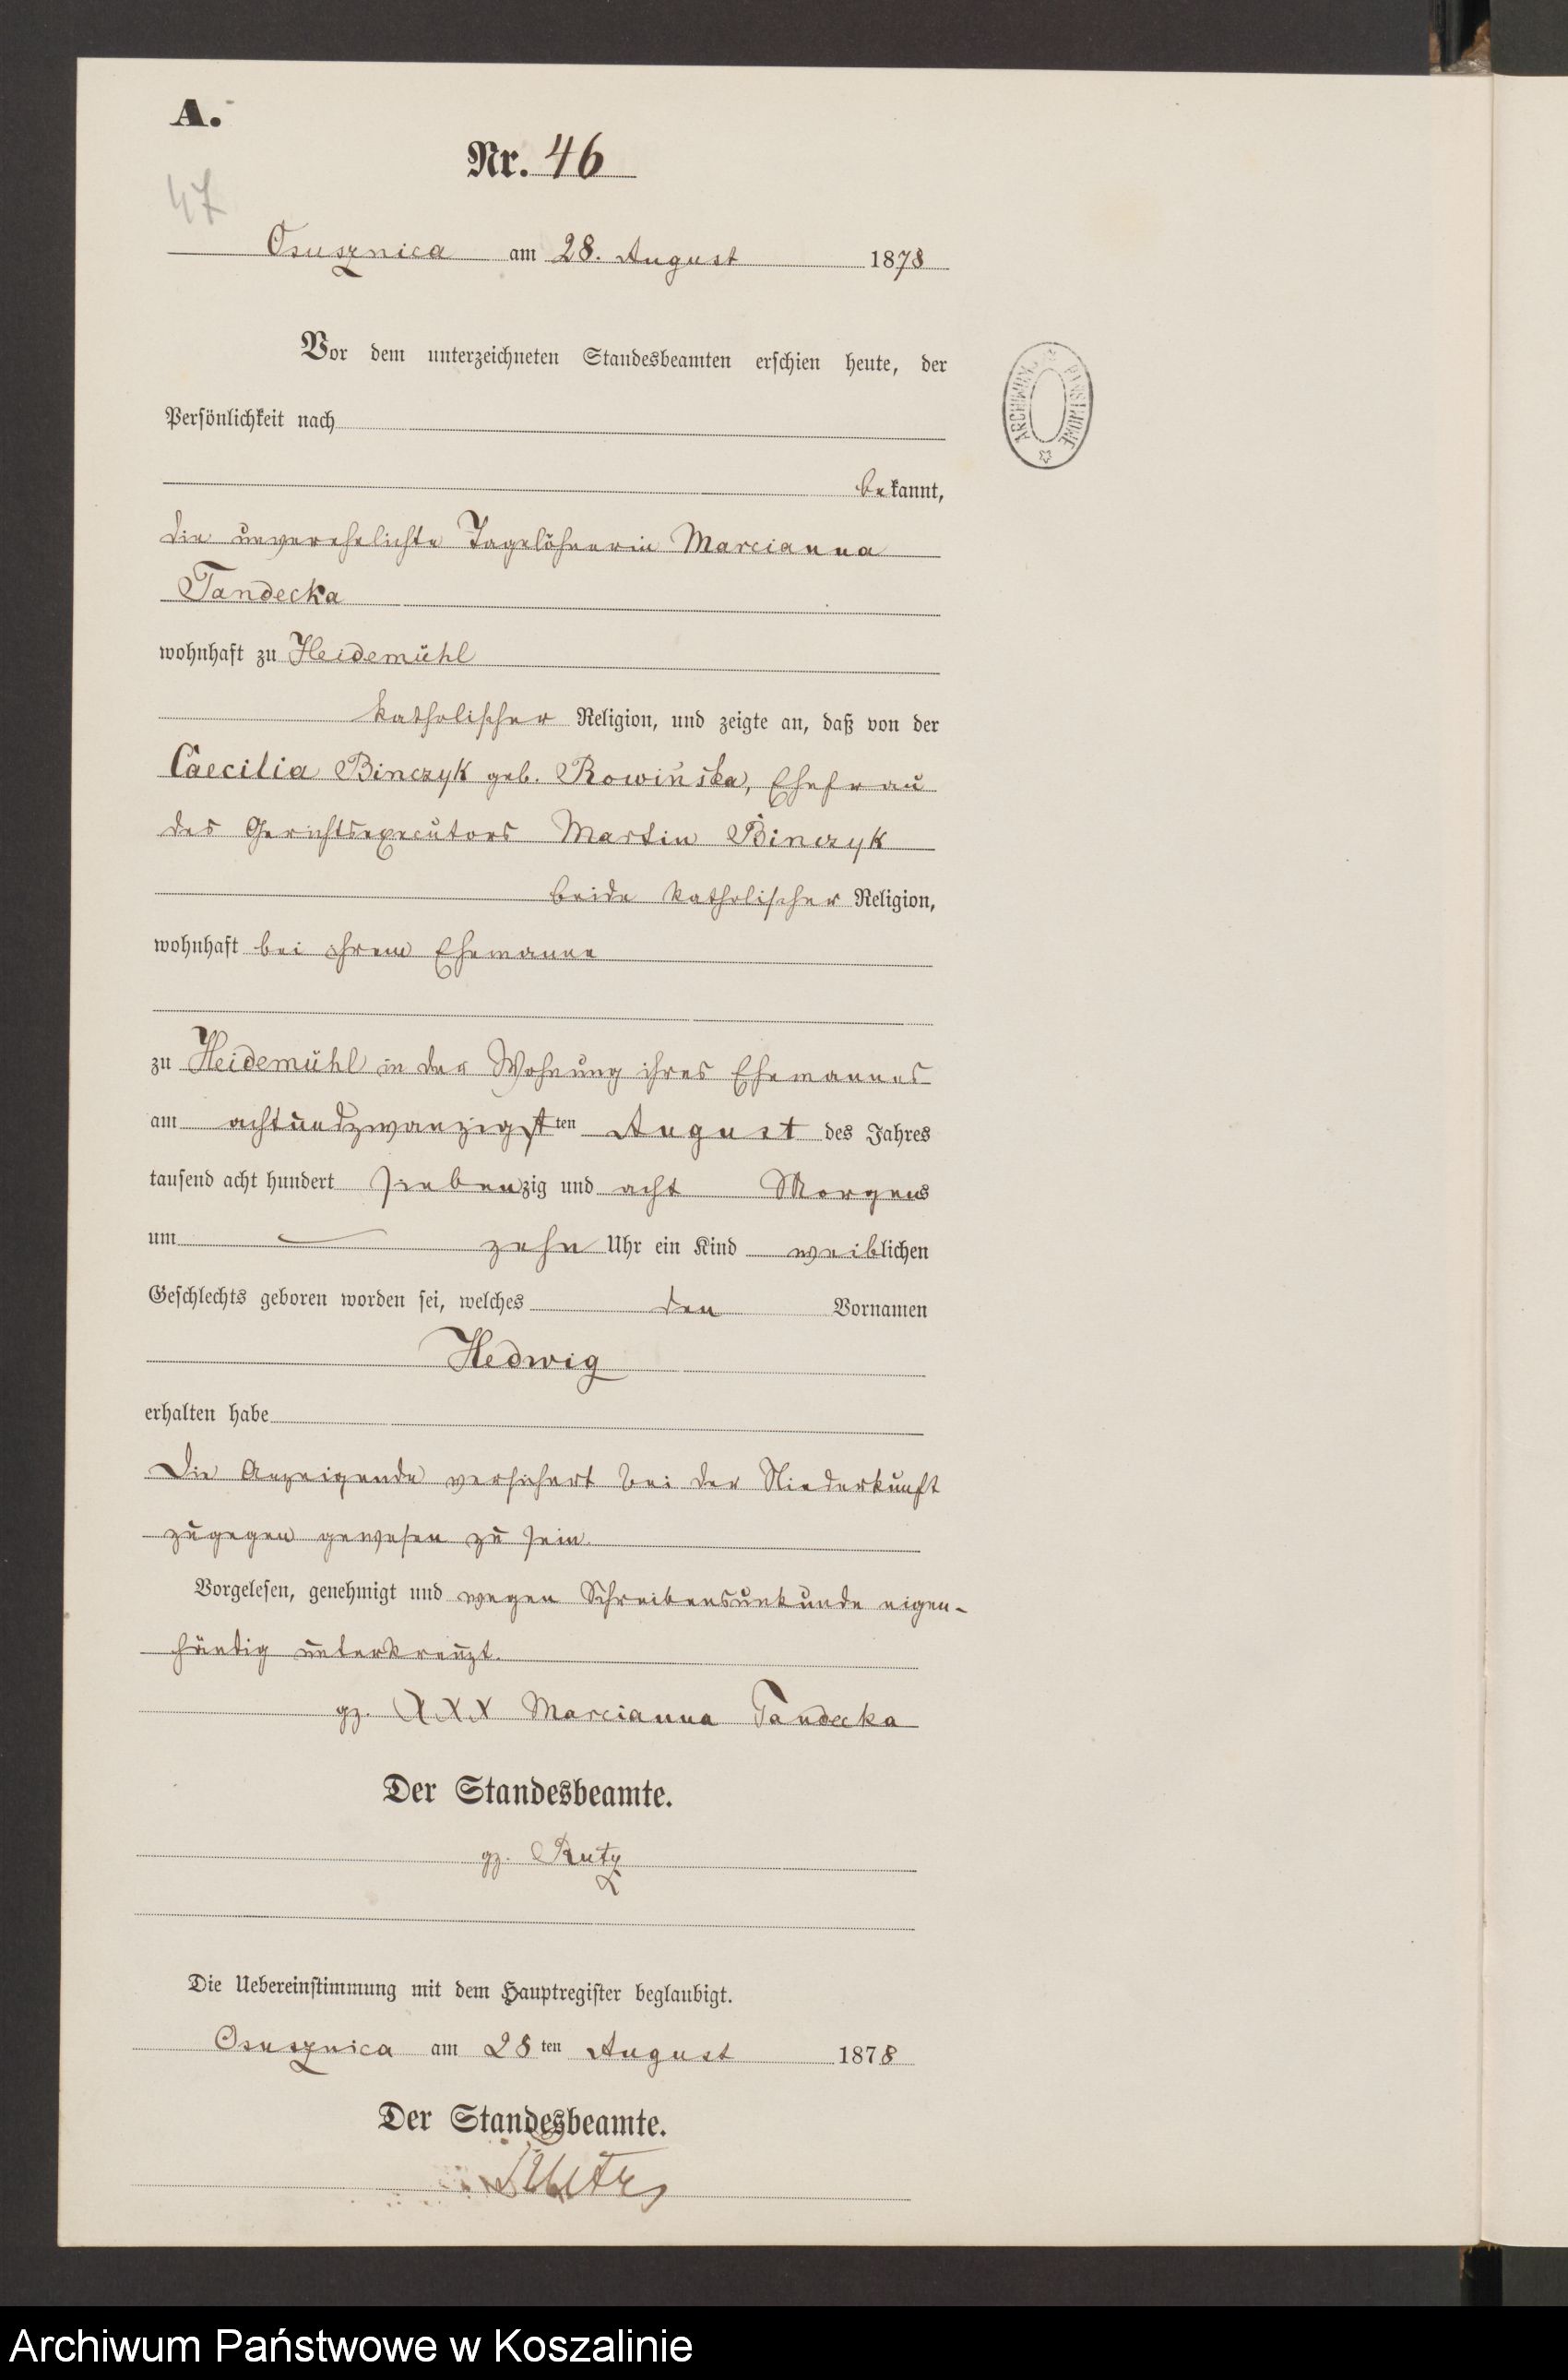 A.
Nr. 46
47
Osusznica am 28. August 1878
Vor dem unterzeichneten Standesbeamten erschien heute, der
Persönlichkeit nach
bekannt,
die unverehelichte Tagelöhnerin Marcianna
Tandecka
wohnhaft zu Heidemühl
katholischer Religion, und zeigte an, daß von der
Caecilia Binczyk geb. Rowińska, Ehefrau
des Gerichtsexecutors Martin Binczyk
beide katholischer Religion,
wohnhaft bei ihrem Ehemanne
zu Heidemühl in der Wohnung ihres Ehemannes
am achtundzwanzigsten August des Jahres
tausend acht hundert siebenzig und acht Morgens
um zehn Uhr ein Kind weiblichen
Geschlechts geboren worden sei, welches den Vornamen
Hedwig
erhalten habe
Die Anzeigende versichert bei der Niederkunft
zugegen gewesen zu sein.
Vorgelesen, genehmigt und wegen Schreibensunkunde eigen-
händig unterkreuzt.
gz. XXX Marcianna Tandecka
Der Standesbeamte.
gz. Rutz
Die Uebereinstimmung mit dem Hauptregister beglaubigt.
Osusznica am 28ten August 1878
Der Standesbeamte.
Rutz
ARCHIWUM PAŃSTWOWE
Archiwum Państwowe w Koszalinie